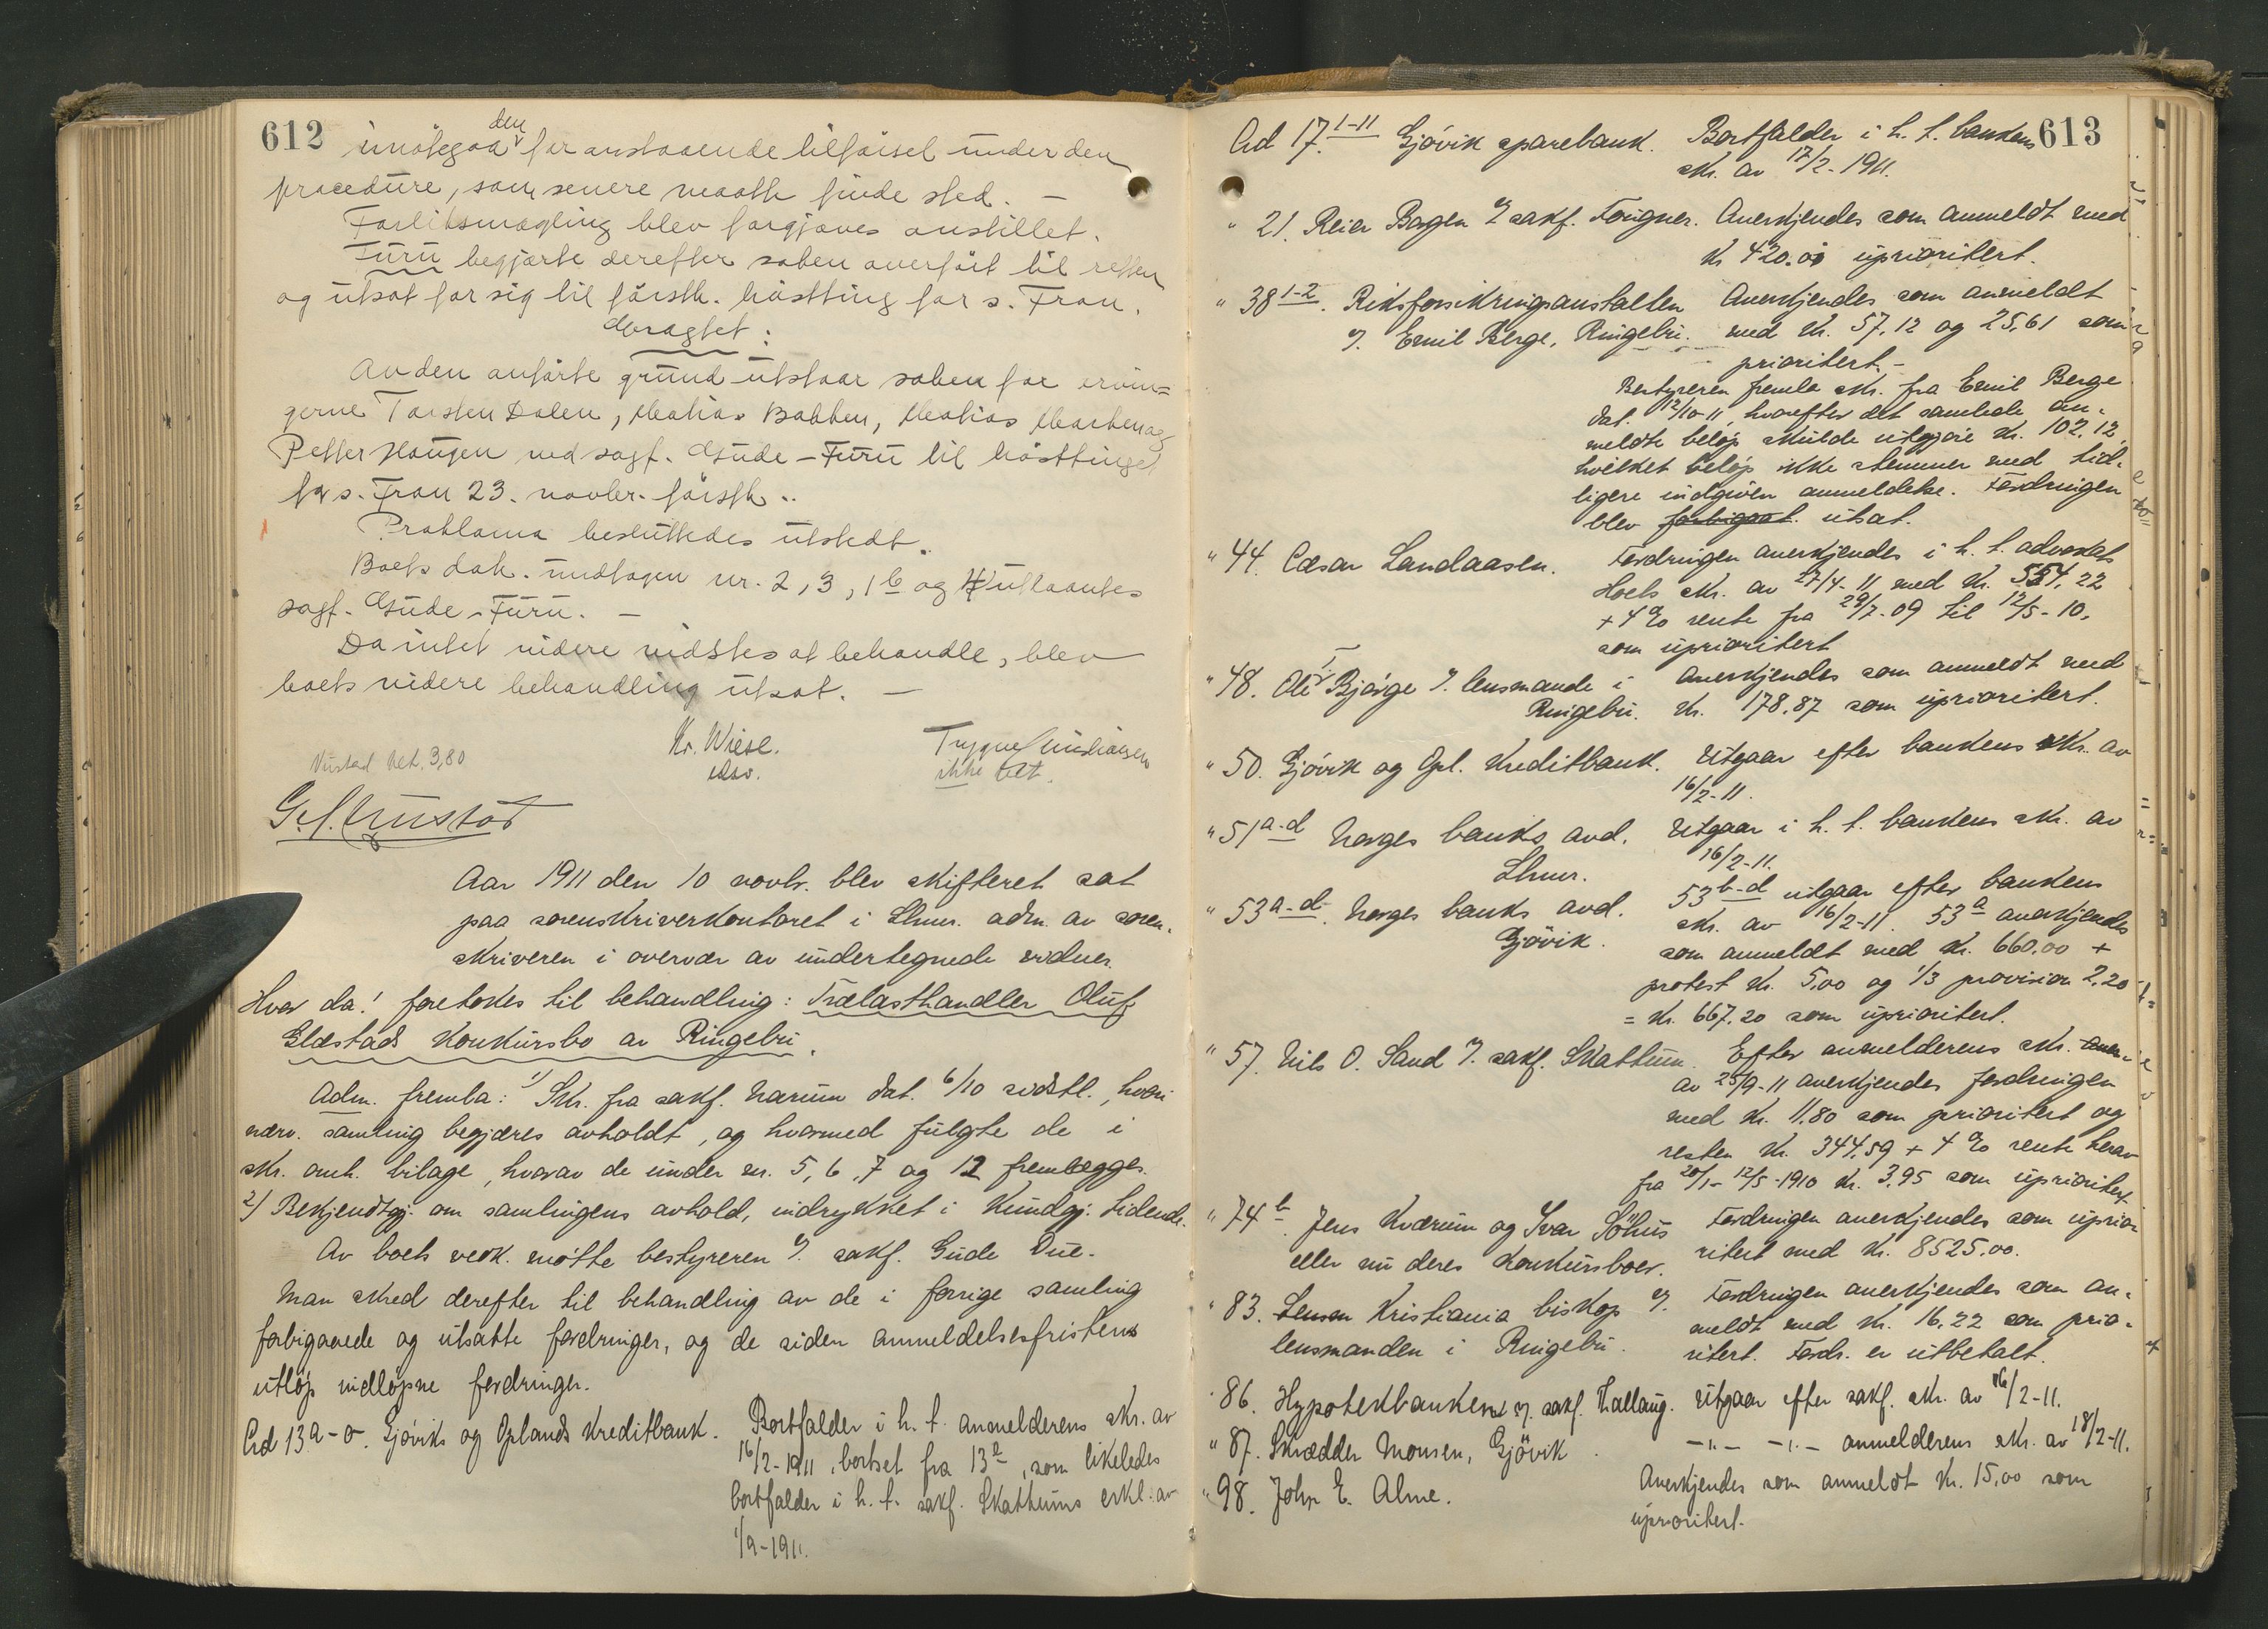 612
den
imøtegaa foranstaaende tilførsel under den
procedure, som senere maatte finde sted. —
Forliksmægling blev forgjæves anstillet.
Furu begjærte derefter saken overført til retten
og utsat for sig til førstk. høstting for s. Fron.
Avagtet:
Av den anførte grund utstaar saken for arvin=
gerne Torsten Dalen, Matias Bakken, Matias Marken og
Petter Haugen ved sagf. Gude-Furu til høsttinget
for s. Fron 23. novbr. førstk..
Proklama besluttedes utstedt.
Boets dok. undtagen nr. 2, 3, 1b og 4 utlaantes
sagf. Gude-Furu. —
Da intet videre vidstes at behandle, blev
boets videre behandling utsat. —
Kr. Wiese.
edsv.
Trygve
ikke bet.
Nustad bet. 3,80
Aar 1911 den 10 novbr. blev skifteret sat
paa sorenskriverkontoret i Lhmr. adm. av soren-
skriveren i overvær av undertegnede vidner.
Hvor da! foretokes til behandling: Trælasthandler Oluf
Glæstads konkursbo av Ringebu.
Adm. fremla: 1) Skr. fra sakf. Narum dat. 6/10 sidstl., hvori
nærv. samling begjæres avholdt, og hvormed fulgte de i
skr. omh. bilage, hvorav de under nr. 5, 6, 7 og 12 fremlegges.
2) Bekjendtgj. om samlingens avhold, indrykket i Kundgj. tidende.
Av boets vedk. møtte bestyreren v. sakf. Gude Due.
Man skred derefter til behandling av de i forrige samling
forbigaaede og utsatte fordringer, og de siden anmeldelsesfristens
utløp indløpne fordringer.
Ad 13 a-o. Gjøviks og Oplands Kreditbank. Bortfalder i h. t. anmelderens skr. av
16/2-1911, bortset fra 13 l, som likeledes
bortfalder i h. t. sakf. Skattums erkl. av
1/9-1911.
613
Ad 17 1-11 Gjøvik sparebank. Bortfalder i h. t. bankens
skr. av 17/2-1911.
" 21. Reier Bagen v. sakf. Fougner. Anerkjendes som anmeldt med
Kr 420.00 uprioritert.
" 38 1-2. Riksforsikringsanstalten Anerkjendes som anmeldt
v. Emil Berge, Ringebu. med Kr. 57.12 og 25.61 som
prioritert. -
Bestyreren fremla skr. fra Emil Berge
dat. 12/10-11, hvorefter det samlede an-
meldte beløp skulde utgjøre Kr. 102.12,
hvilket beløp ikke stemmer med tid-
ligere indgiven anmeldelse. Fordringen
blev forbigaat. utsat.
" 44. Cæsar Landaasen. Fordringen anerkjendes i h. t. advokat
Hoels skr. av 27/4-11 med Kr. 554.22
+ 4% rente fra 29/7-09 til 12/5-10.
som uprioritert
" 48. Ole T. Bjørge v. lensmanden i Anerkjendes som anmeldt med
Ringebu. Kr. 178.87 som uprioritert.
" 50. Gjøvik og Opl. Kreditbank. Utgaar efter bankens skr. av
16/2-11.
" 51 a-d Norges banks avd. Utgaar i h. t. bankens skr. av
Lhmr. 16/2-11.
" 53 a-d. Norges banks avd. 53 b-d utgaar efter bankens
Gjøvik. skr. av 16/2-11. 53 a anerkjendes
som anmeldt med Kr. 660.00 +
protest Kr. 5,00 og 1/3 provision 2.20
= Kr. 667.20 som uprioritert.
" 57. Nils O. Sand v. sakf. Skattum. Efter anmelderens skr. aner-
av 25/9-11 anerkjendes fordringen
med Kr. 11.80 som prioritert og
resten Kr. 344.59 + 4% rente herav
fra 20/1- 12/5-1910 Kr. 3.95 som uprioritert
" 74 b. Jens Kværum og Ivar Søhus Fordringen anerkjendes som uprio-
eller nu deres konkursboer. ritert med Kr. 8525.00.
" 83. Lensm Kristiania biskop v. Fordringen anerkjendes som an-
lensmanden i Ringebu. meldt med Kr. 16.22 som prio-
ritert. Fordr. er utbetalt.
" 86. Hypotekbanken v. sakf. Hallang. Utgaar efter sakf. skr. av 16/2-11.
" 87. Skrædder Monsen, Gjøvik. -"- -"- anmelderens skr. av 18/2-11.
" 98. John E. Alme. Anerkjendes som anmeldt Kr. 15.00 som
uprioritert.